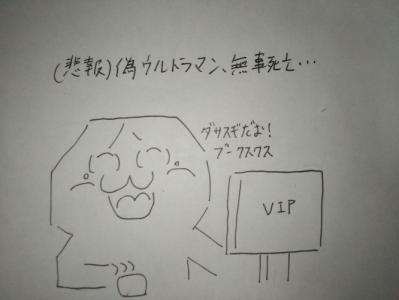 (悲報)偽ウルトラマン、無事死亡…
ダサスギだお!
ブークスクス
VIP